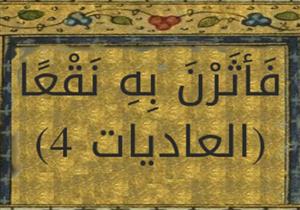 فَأثَرْنَ بِهِ نَقْعًا
(العاديات 4)